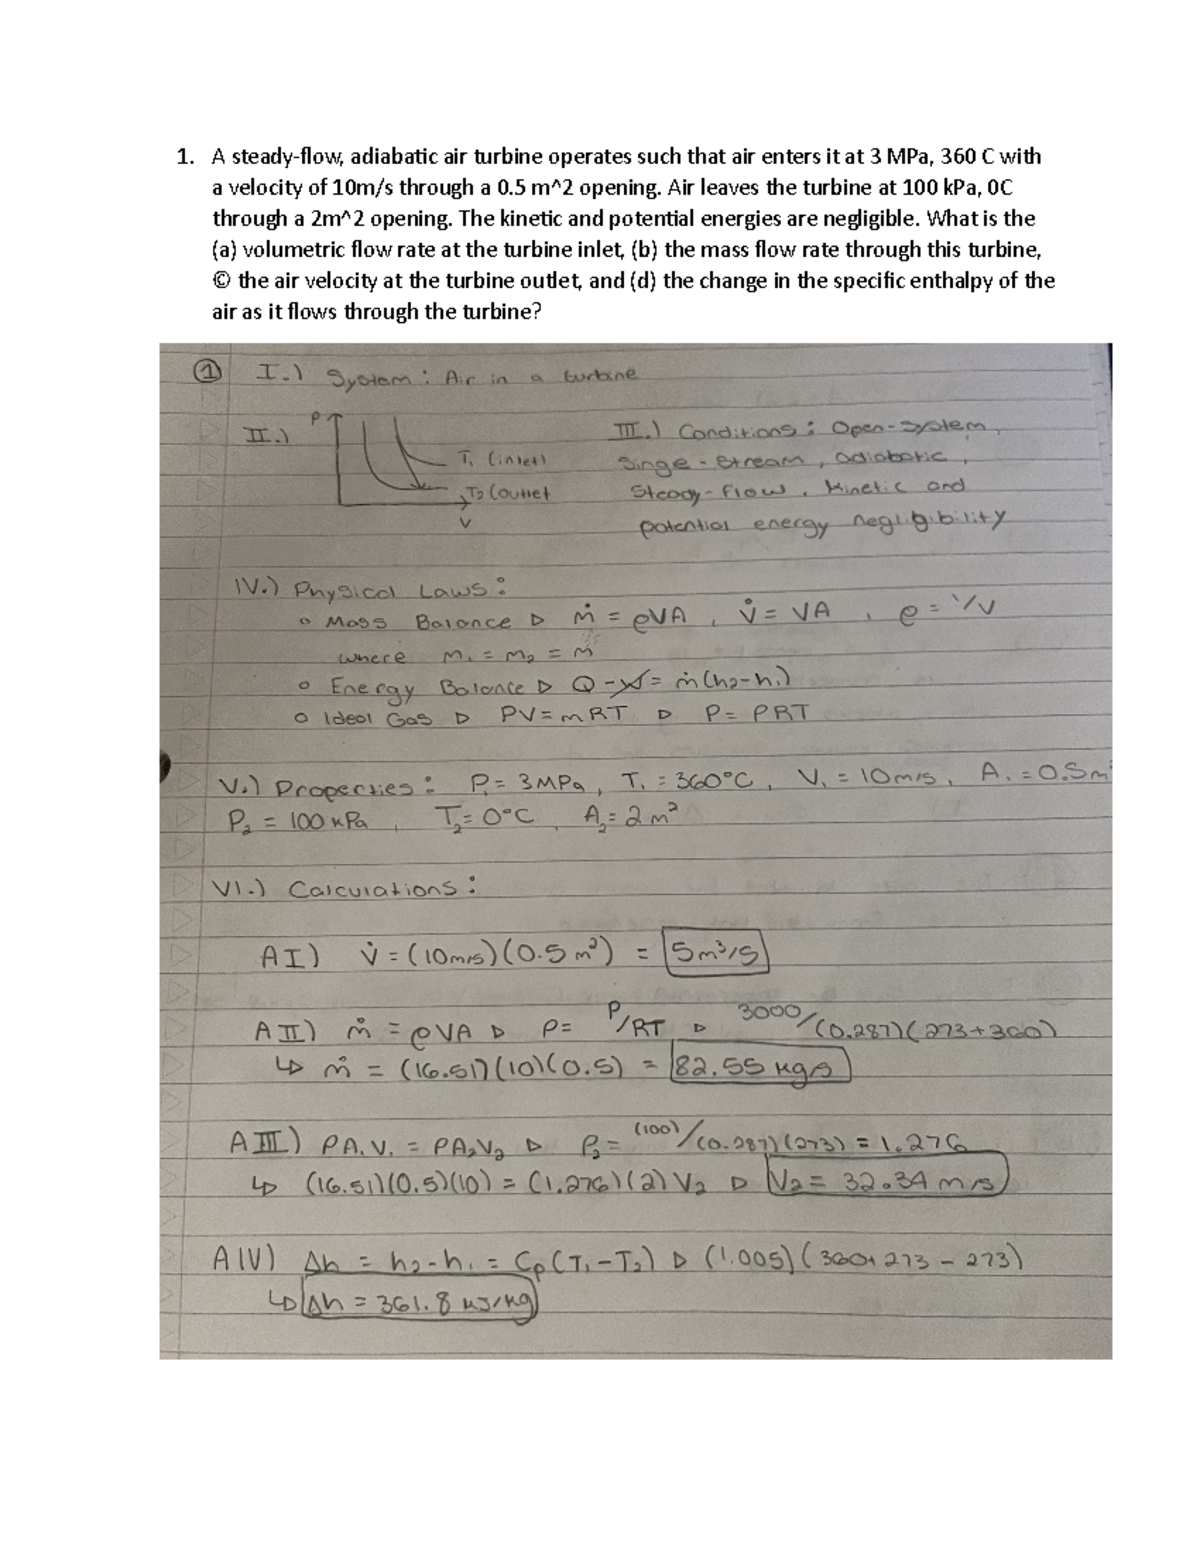 1. A steady-flow, adiabatic air turbine operates such that air enters it at 3 MPa, 360 C with
a velocity of 10m/s through a 0.5 m^2 opening. Air leaves the turbine at 100 kPa, 0C
through a 2m^2 opening. The kinetic and potential energies are negligible. What is the
(a) volumetric flow rate at the turbine inlet, (b) the mass flow rate through this turbine,
© the air velocity at the turbine outlet, and (d) the change in the specific enthalpy of the
air as it flows through the turbine?
① I.) System: Air in a turbine
II.) P
T₁ (inlet)
T₂ (outlet
V
III.) Conditions: Open-system,
Singe-stream, adiabatic,
Steady-flow, kinetic and
potential energy negligibility
IV.) Physical Laws:
o Mass Balance ▷ ṁ = ρVA, V̇ = VA, ρ = 1/V
where m₁ = m₂ = ṁ
o Energy Balance ▷ Q - W = ṁ(h₂-h₁)
o Ideal Gas ▷ PV = mRT ▷ P = PRT
V.) Properties: P₁ = 3MPa, T₁ = 360°C, V₁ = 10m/s, A₁ = 0.5m
P₂ = 100 kPa, T₂ = 0°C, A₂ = 2m²
VI.) Calculations:
A I) V̇ = (10m/s)(0.5m²) = 5m³/s
A II) ṁ = ρVA ▷ P = P/RT ▷ 3000/(0.287)(273+360)
↳ ṁ = (16.51)(10)(0.5) = 82.55 kg/s
A III) PA₁V₁ = PA₂V₂ ▷ P₂ = (100)/(0.287)(273) = 1.276
↳ (16.51)(0.5)(10) = (1.276)(2)V₂ ▷ V₂ = 32.34 m/s
A IV) Δh = h₂-h₁ = Cp(T₁-T₂) ▷ (1.005)(360+273-273)
↳ Δh = 361.8 kJ/kg